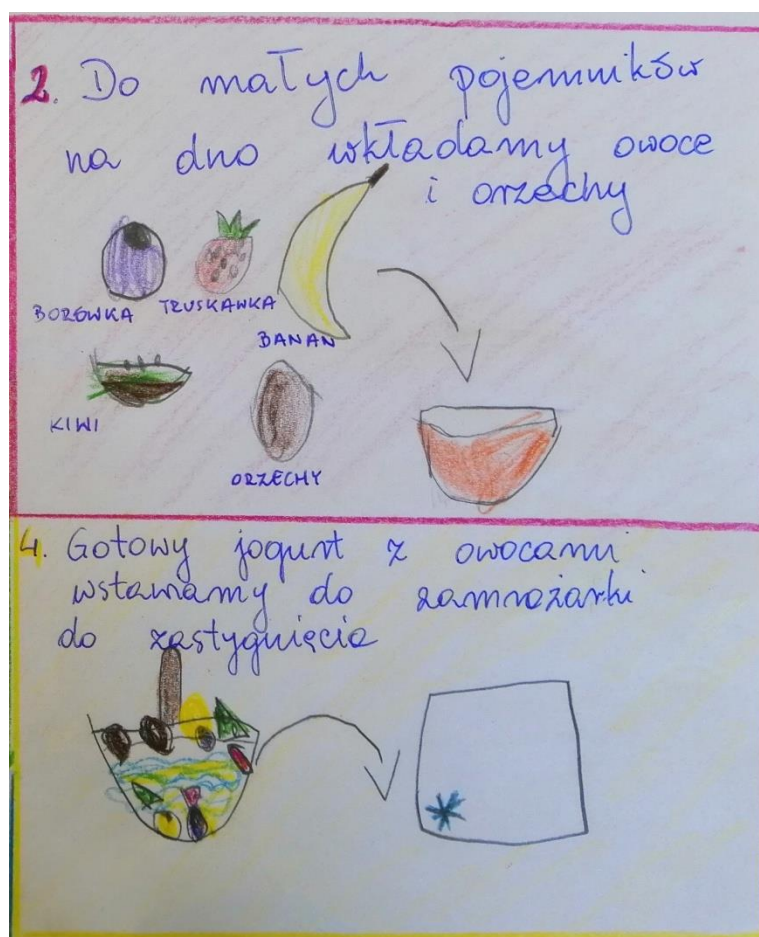 2. Do małych pojemników
na dno wkładamy owoce
i orzechy
BORÓWKA TRUSKAWKA
BANAN
KIWI
ORZECHY
4. Gotowy jogurt z owocami
wstawiamy do zamrażarki
do zastygnięcia